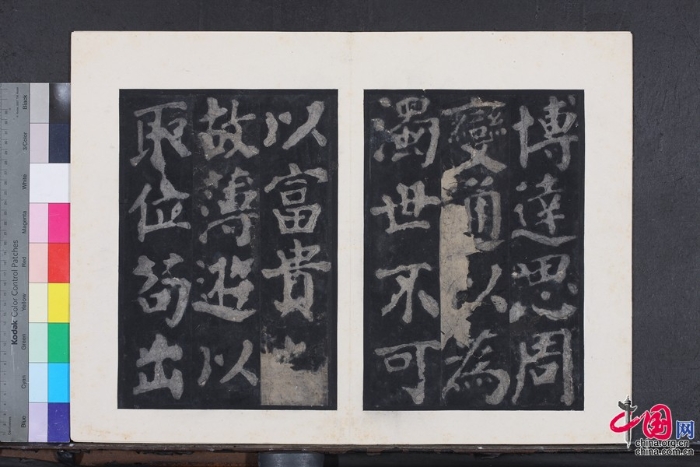 博達思周
變通以為
濁世不可
以富貴
故薄遊以
取位苟出
Kodak Color Control Patches
Black
3/Color
White
Magenta
Red
Yellow
Green
Cyan
Blue
中国网
china.org.cn
china.com.cn